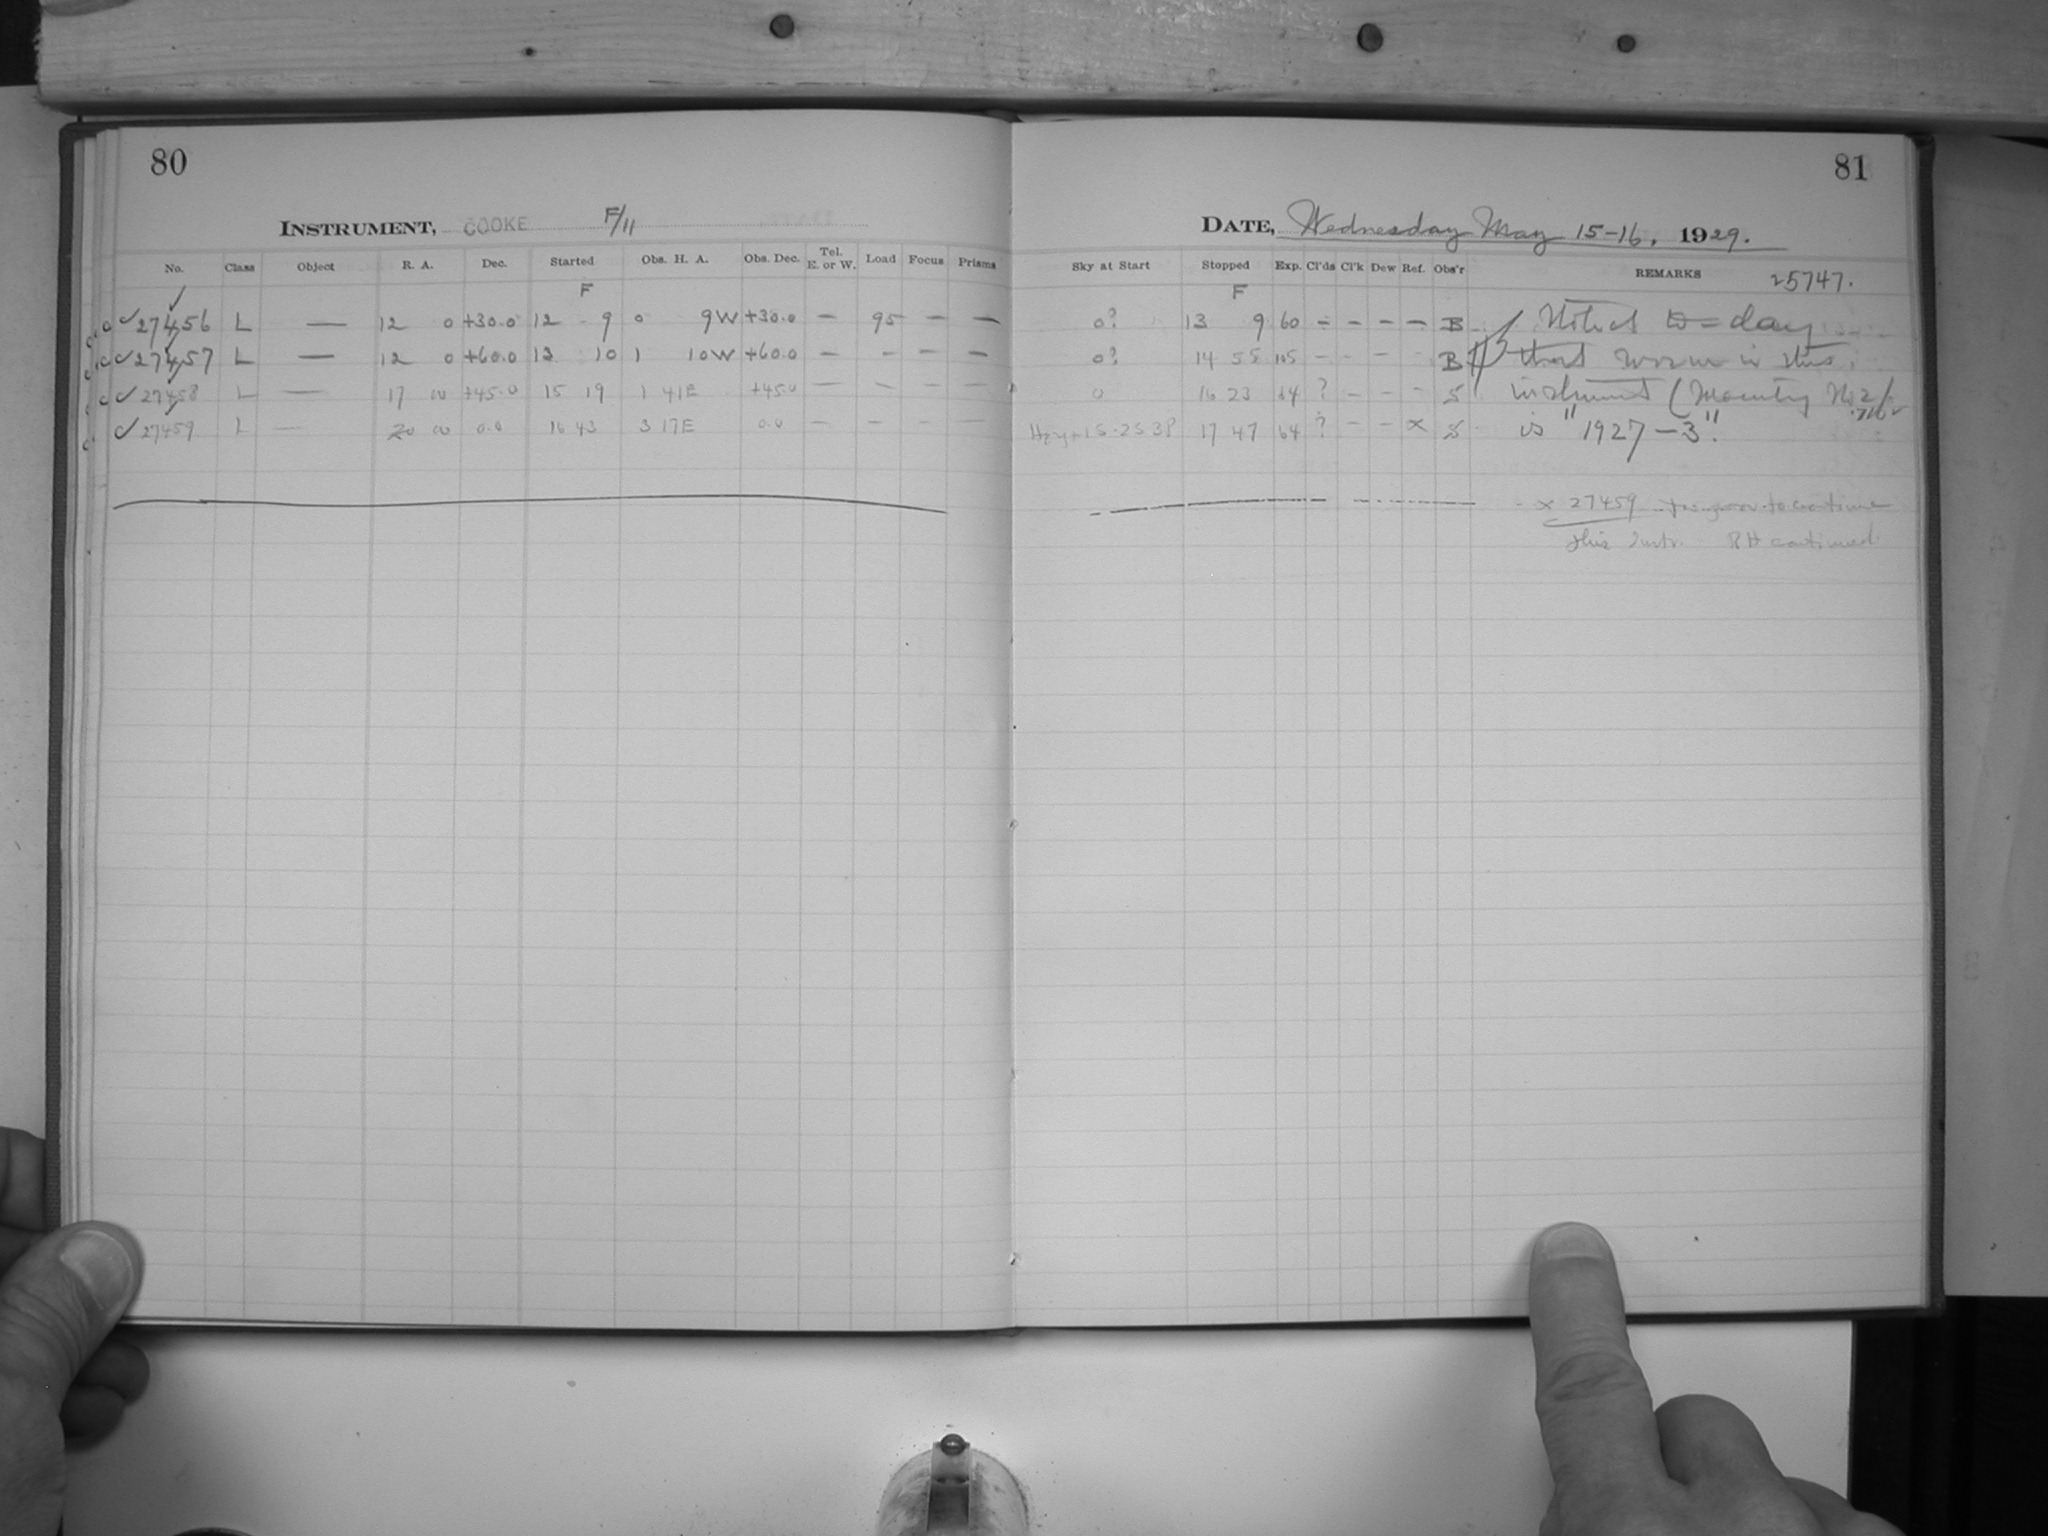 80
INSTRUMENT, COOKE F/11
No. Class Object R. A. Dec. Started Obs. H. A. Obs. Dec. Tel. E. or W. Load Focus Prisms
F
✓27456 L — 12 0 +30.0 12 9 0 9W +30.0 — 95 — —
✓27457 L — 12 0 +60.0 13 10 1 10W +60.0 — — — —
✓27458 L — 17 00 +45.0 15 19 1 41E +45.0 — — — —
✓27459 L — 20 00 0.0 16 43 3 17E 0.0 — — — —
81
DATE, Wednesday May 15-16, 1929.
Sky at Start Stopped Exp. Cl'ds Cl'k Dew Ref. Obs'r REMARKS 25747.
F
0? 13 9 60 — — — — B Noticed to-day
0? 14 55 105 — — — B that worm in this
0 16 23 64 ? — — — S instrument (Mounting No 2)
17 47 64 ? — — x S is "1927-3".
x 27459 to continue
this Instr. RH continued.